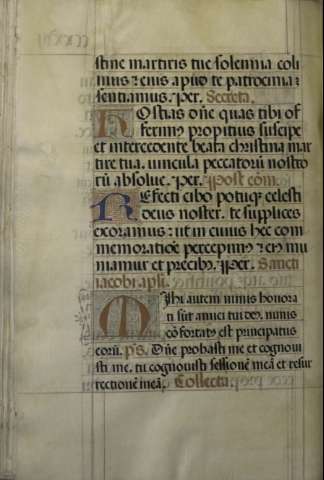 stine martiris tue solennia coli
mus: eius apud te patrocinia
sentiamus. Per. Secreta.
Hostias dñe quas tibi of
ferimꝰ propitius suscipe
et intercedente beata christina mar
tire tua. vincula peccatorū nostro
rū absolue. Per. Post com̄.
Refecti cibo potuqꝫ celesti
deus noster. te supplices
exoramus: ut in cuius hec com
memoratiōe percepimꝰ: eiꝰ mu
niamur et precibꝰ. Per. Sancti
iacobi apłi.
Mihi autem nimis honora
ti sūt amici tui deꝰ. nimis
cōfortatꝰ est principatus
eorū. p̄s. Dñe probasti me et cognoui
sti me. tu cognouisti sessionē meā et resur
rectionē meā. Collecta.